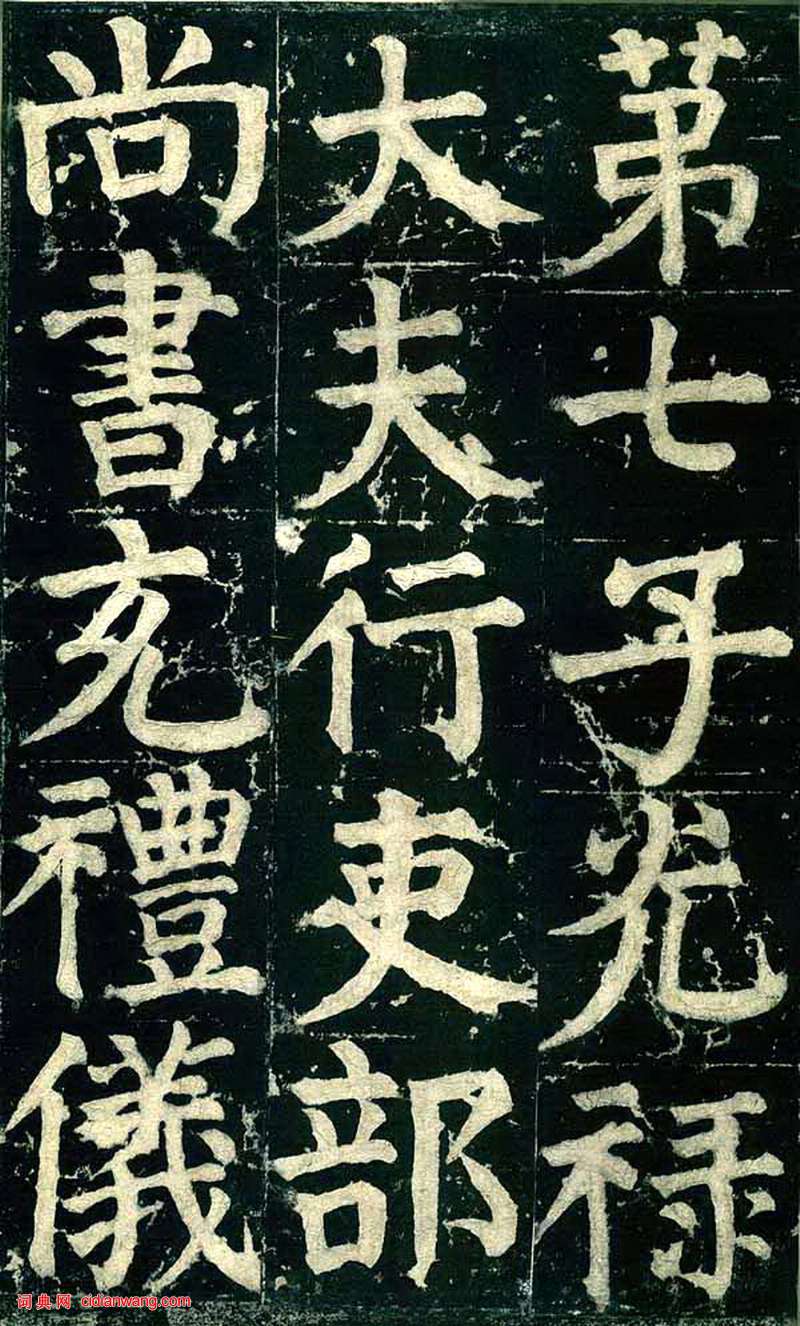 第七子光祿
大夫行吏部
尚書充禮儀
词典网 cidianwang.com